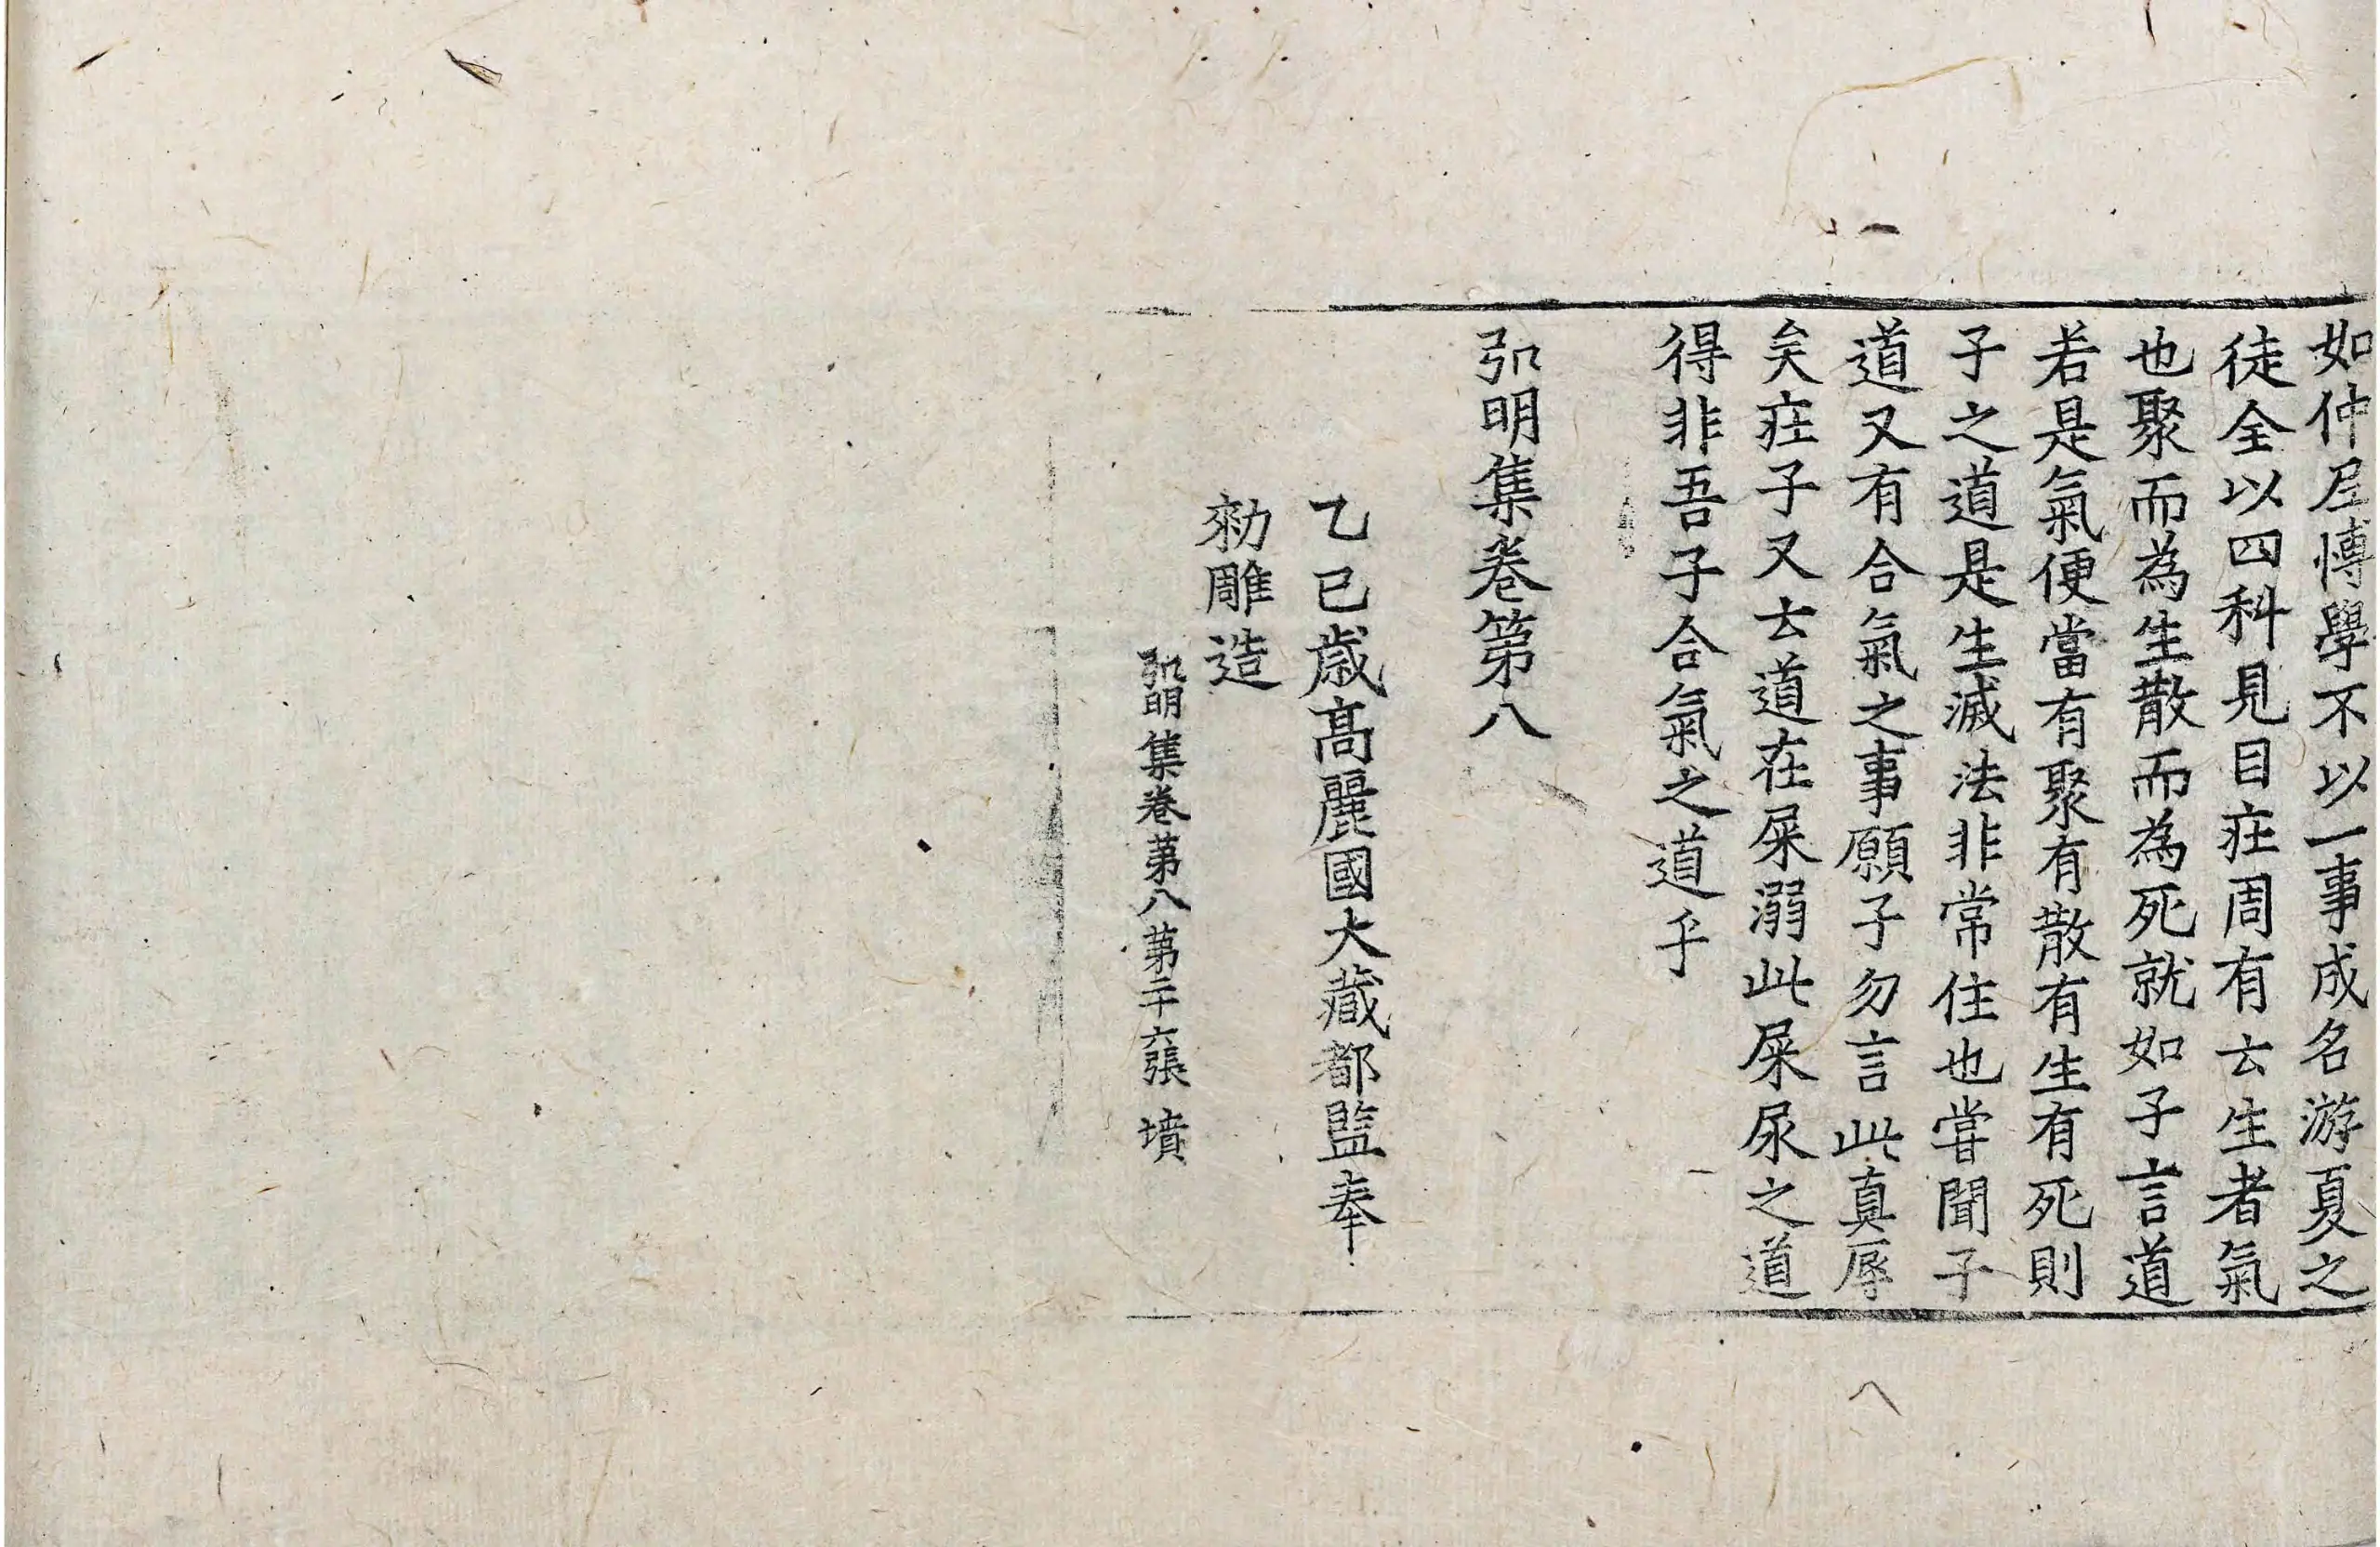 如仲尼愽學不以一事成名游夏之
徒全以四科見目庄周有去生者氣
也聚而為生散而為死就如子言道
若是氣便當有聚有散有生有死則
子之道是生滅法非常住也甞聞子
道又有合氣之事願子勿言此真辱
矣庄子又去道在屎溺此屎尿之道
得非吾子合氣之道乎
弘明集卷第八
乙巳歲高麗國大藏都監奉
勑雕造
弘明集卷第八 第二十六張 墳